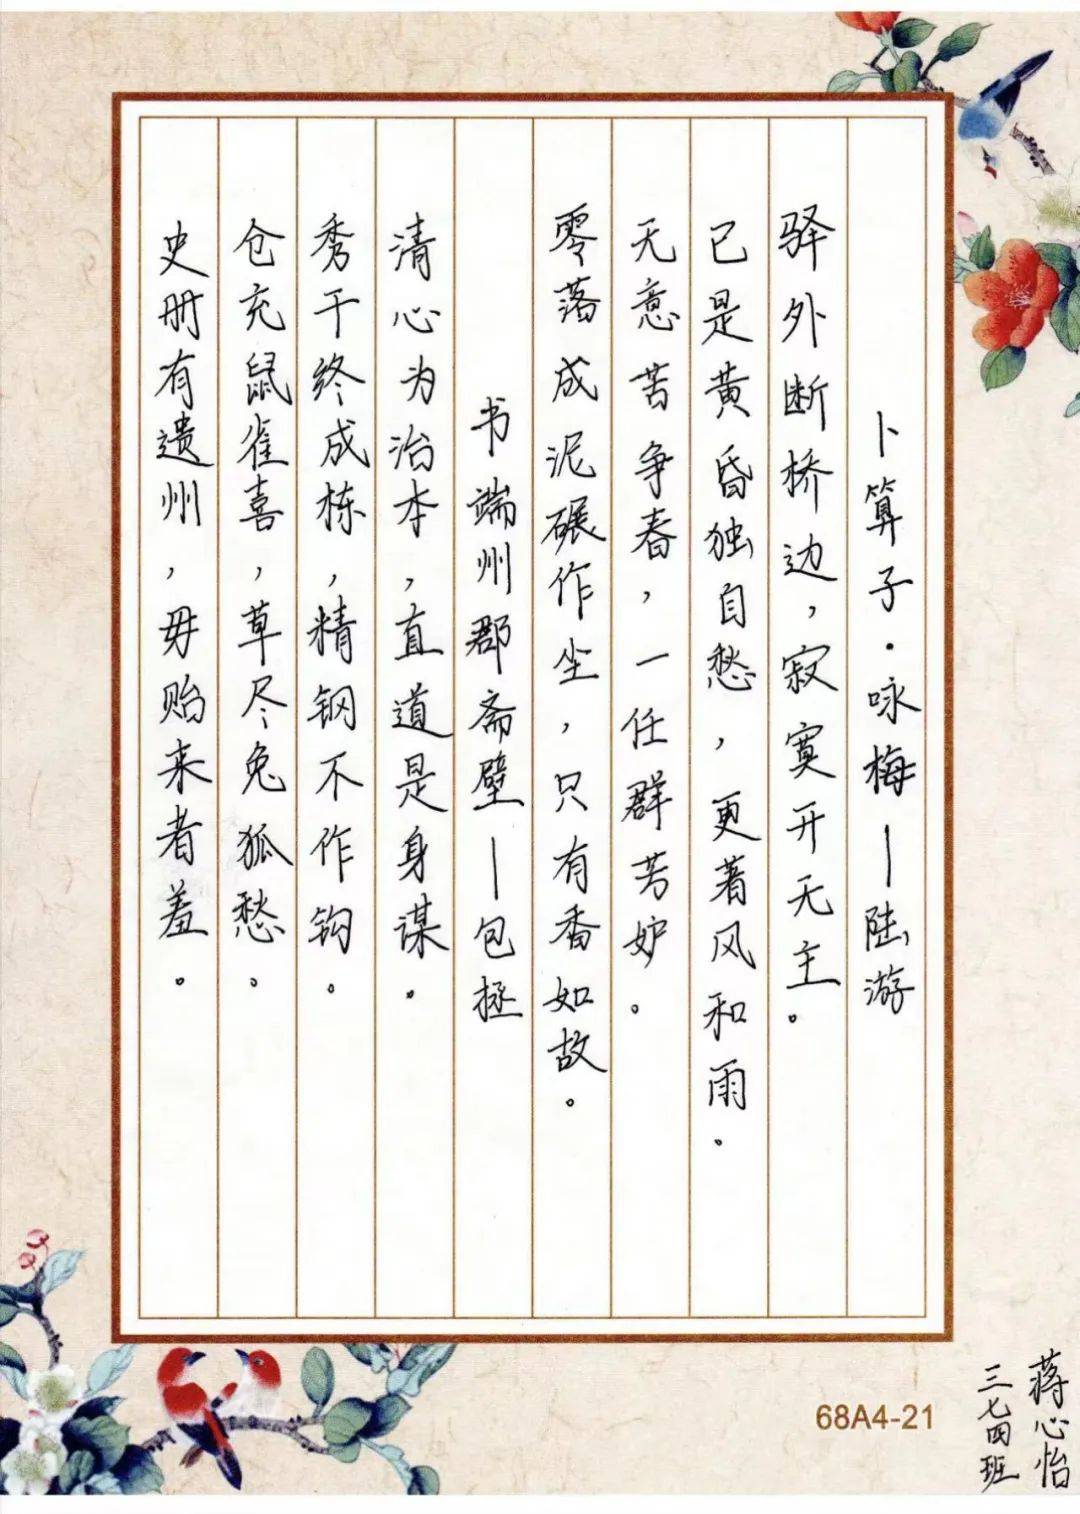 卜算子·咏梅—陆游
驿外断桥边，寂寞开无主。
已是黄昏独自愁，更著风和雨。
无意苦争春，一任群芳妒。
零落成泥碾作尘，只有香如故。
书端州郡斋壁—包拯
清心为治本，直道是身谋。
秀干终成栋，精钢不作钩。
仓充鼠雀喜，草尽兔狐愁。
史册有遗州，毋贻来者羞。
68A4-21
蒋心怡
三七四班